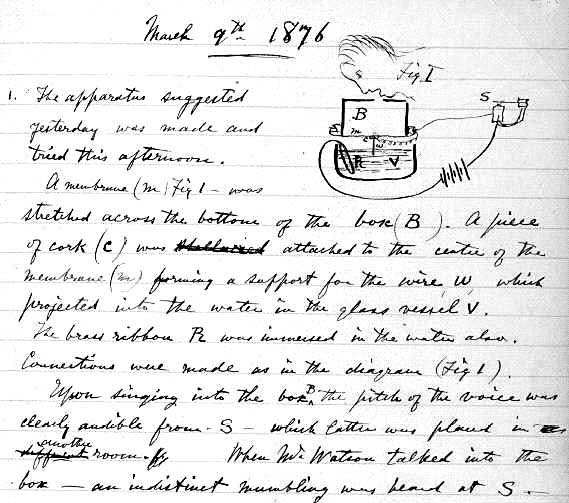 March 9th 1876
Fig I
1. The apparatus suggested
yesterday was made and
tried this afternoon.
A membrane (m) Fig 1 - was
stretched across the bottom of the box (B). A piece
of cork (c) was attached to the centre of the
membrane (m) forming a support for the wire W, which
projected into the water in the glass vessel V.
The brass ribbon R was immersed in the water also.
Connections were made as in the diagram (Fig 1).
Upon singing into the box B, the pitch of the voice was
clearly audible from S - which latter was placed in
another room. When Mr. Watson talked into the
box — an indistinct mumbling was heard at S.
B
S
m
c
w
R
V